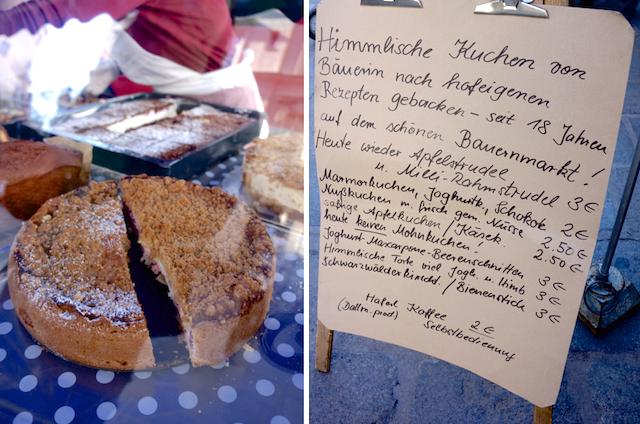 Himmlische Kuchen von
Bäuerin nach hofeigenen
Rezepten gebacken – seit 18 Jahren
auf dem schönen Bauernmarkt!
Heute wieder Apfelstrudel
u. Milli-Rahmstrudel 3€
Marmorkuchen, Joghurtk., Schokok. 2€
Nußkuchen m. frisch gem. Nüsse 2.50€
saftige Apfelkuchen / Käsek. 2.50€
heute keinen Mohnkuchen!
Joghurt-Mascarpone-Beerenschnitten 3€
Himmlische Torte viel Jogh. u. Himb 3€
Schwarzwälderkirscht. / Bienenstich 3€
Haferl Kaffee 2€
(Dallm. prod) Selbstbedienung